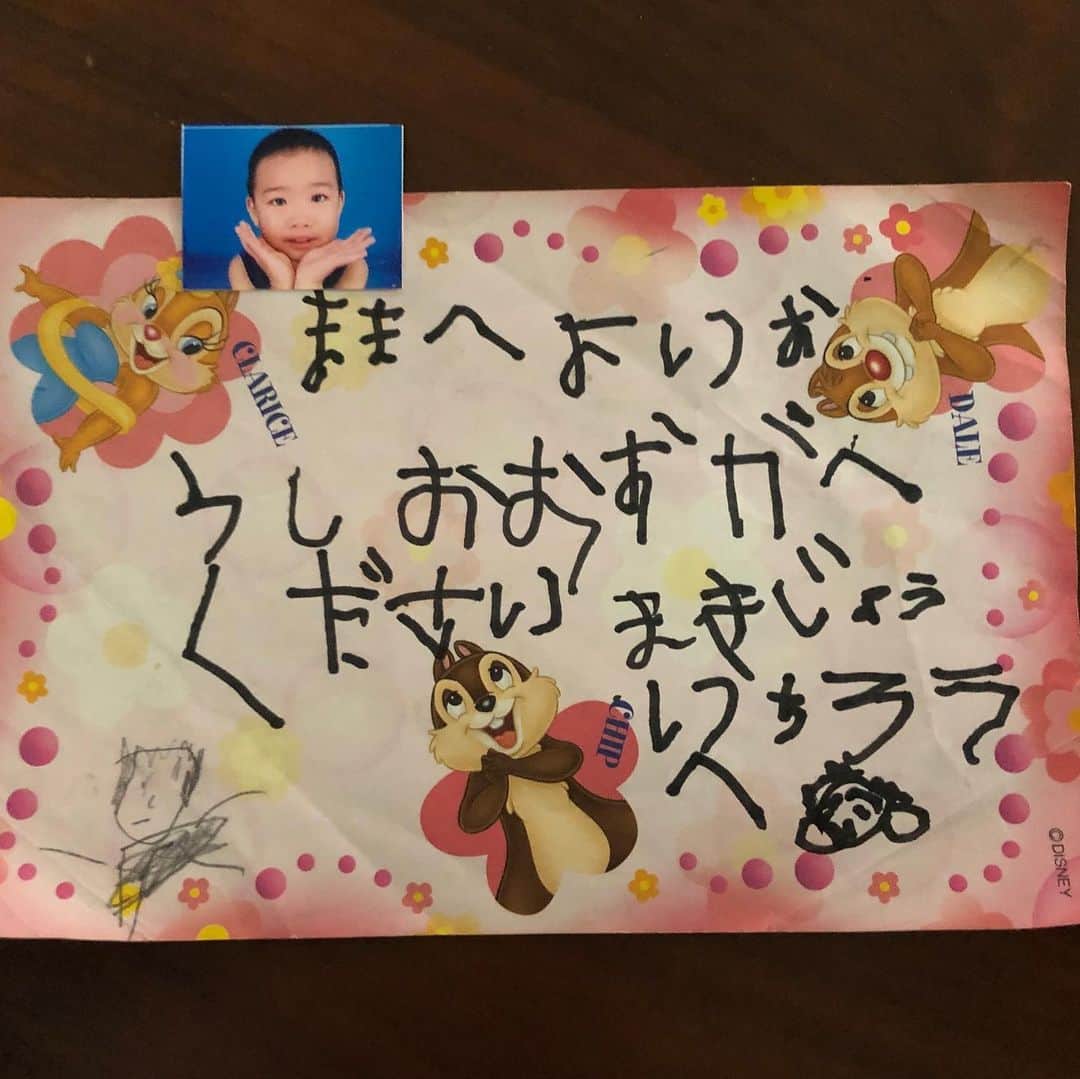 ままへ よいお
CLARICE
DALE
うし おおずがへ
ください まきじょう
いちろう
へ
CHIP
©DISNEY